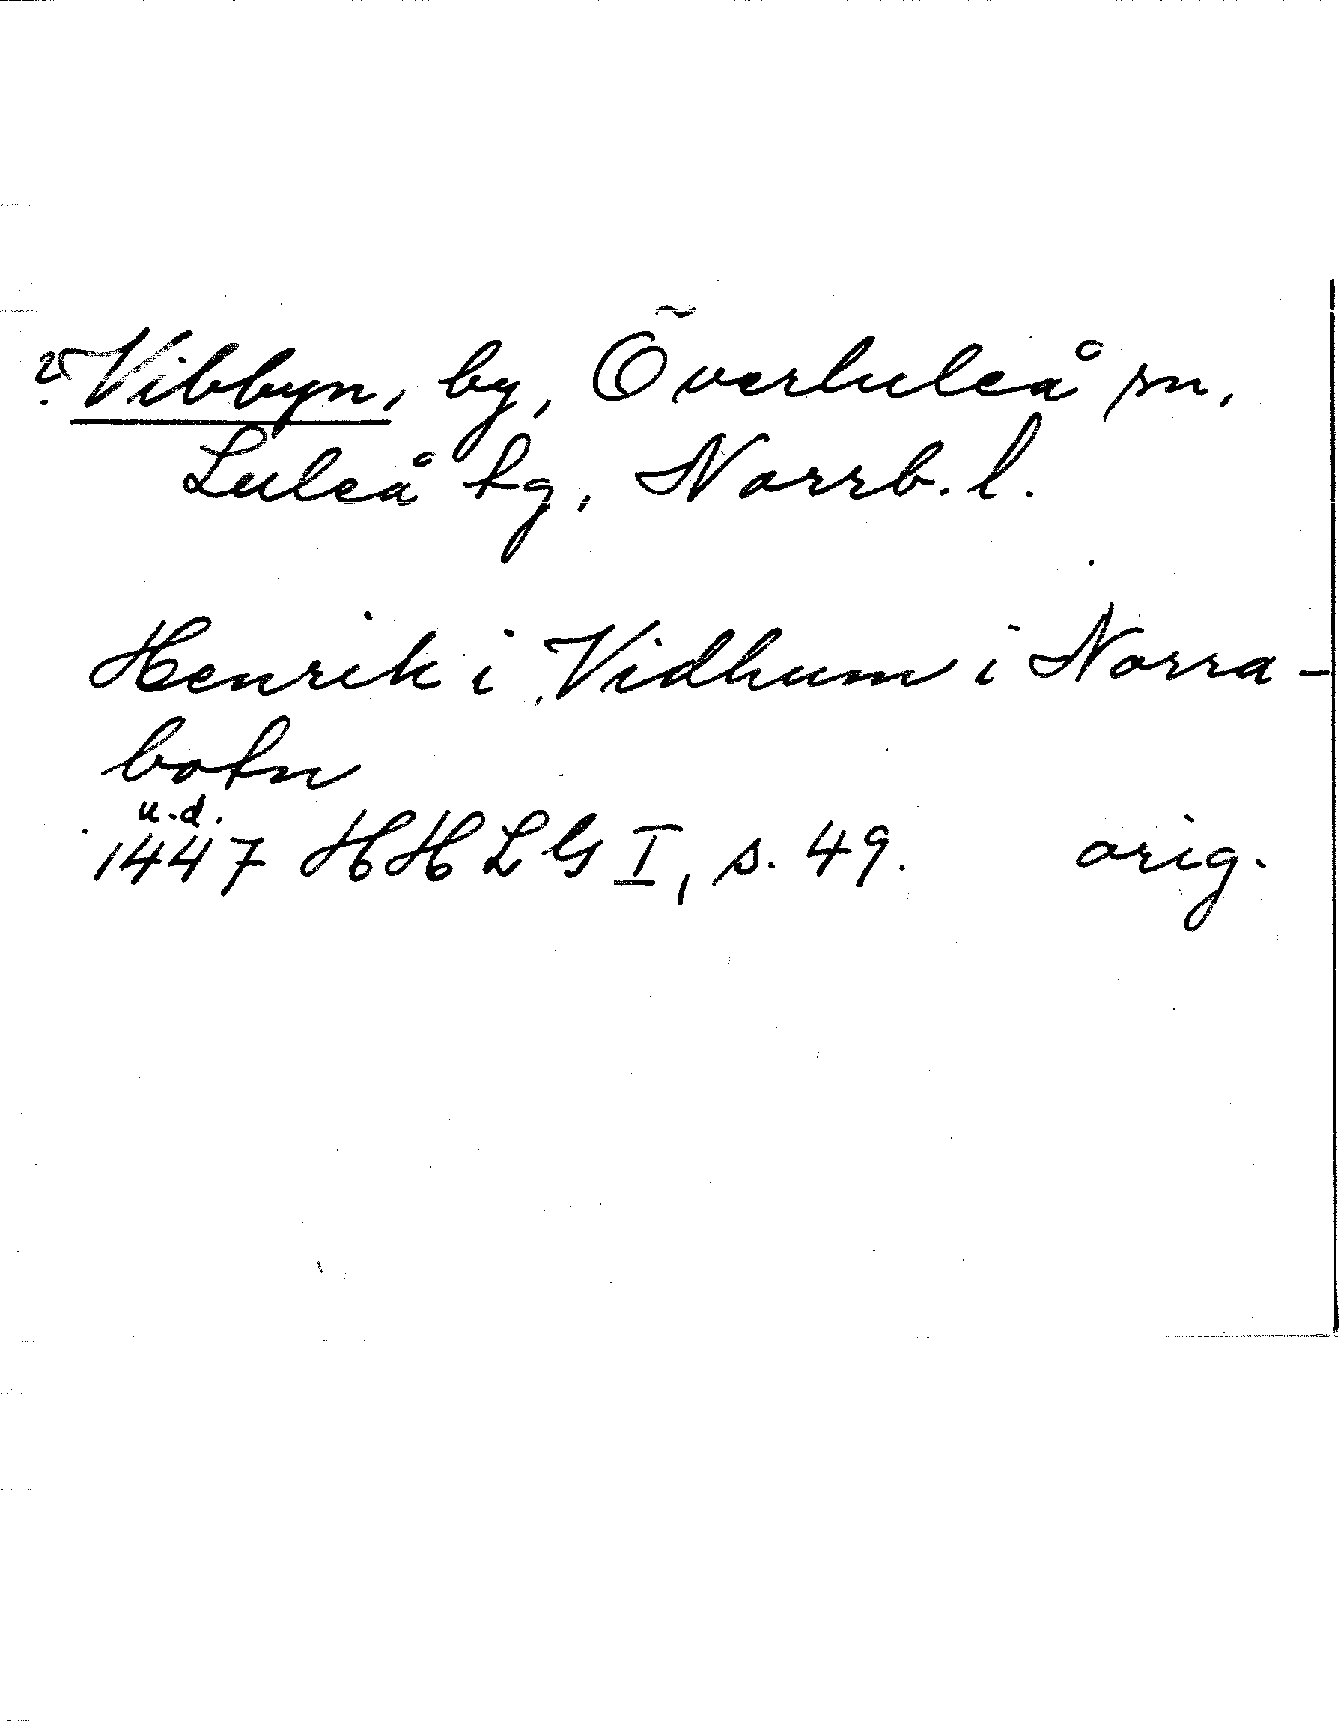 ? Vibbyn, by, Överluleå sn,
Luleå tg, Norrb. l.
Henrik i Vidhum i Norra-
botn
u.d.
1447 HHLG I, s. 49. orig.